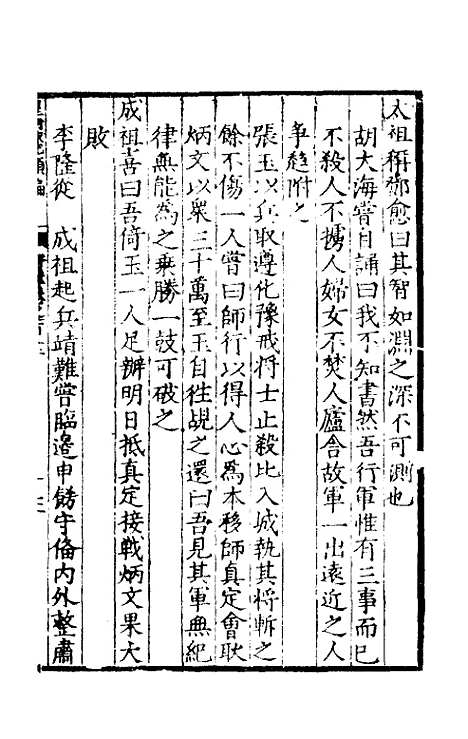 太祖稱鄧愈曰其智如淵之深不可測也
胡大海嘗自誦曰我不知書然吾行軍惟有三事而已
不殺人不擄人婦女不焚人廬舍故軍一出遠近之人
爭趨附之
張玉以兵取遵化豫戒將士止殺比入城執其將斬之
餘不傷一人嘗曰師行以得人心為本移師真定會耿
炳文以眾三十萬至玉自往覘之還曰吾見其軍無紀
律無能為之乗勝一鼓可破之
成祖喜曰吾倚玉一人足辦明日抵真定接戰炳文果大
敗
李隆從 成祖起兵靖難嘗臨邉申飭守俻内外整肅